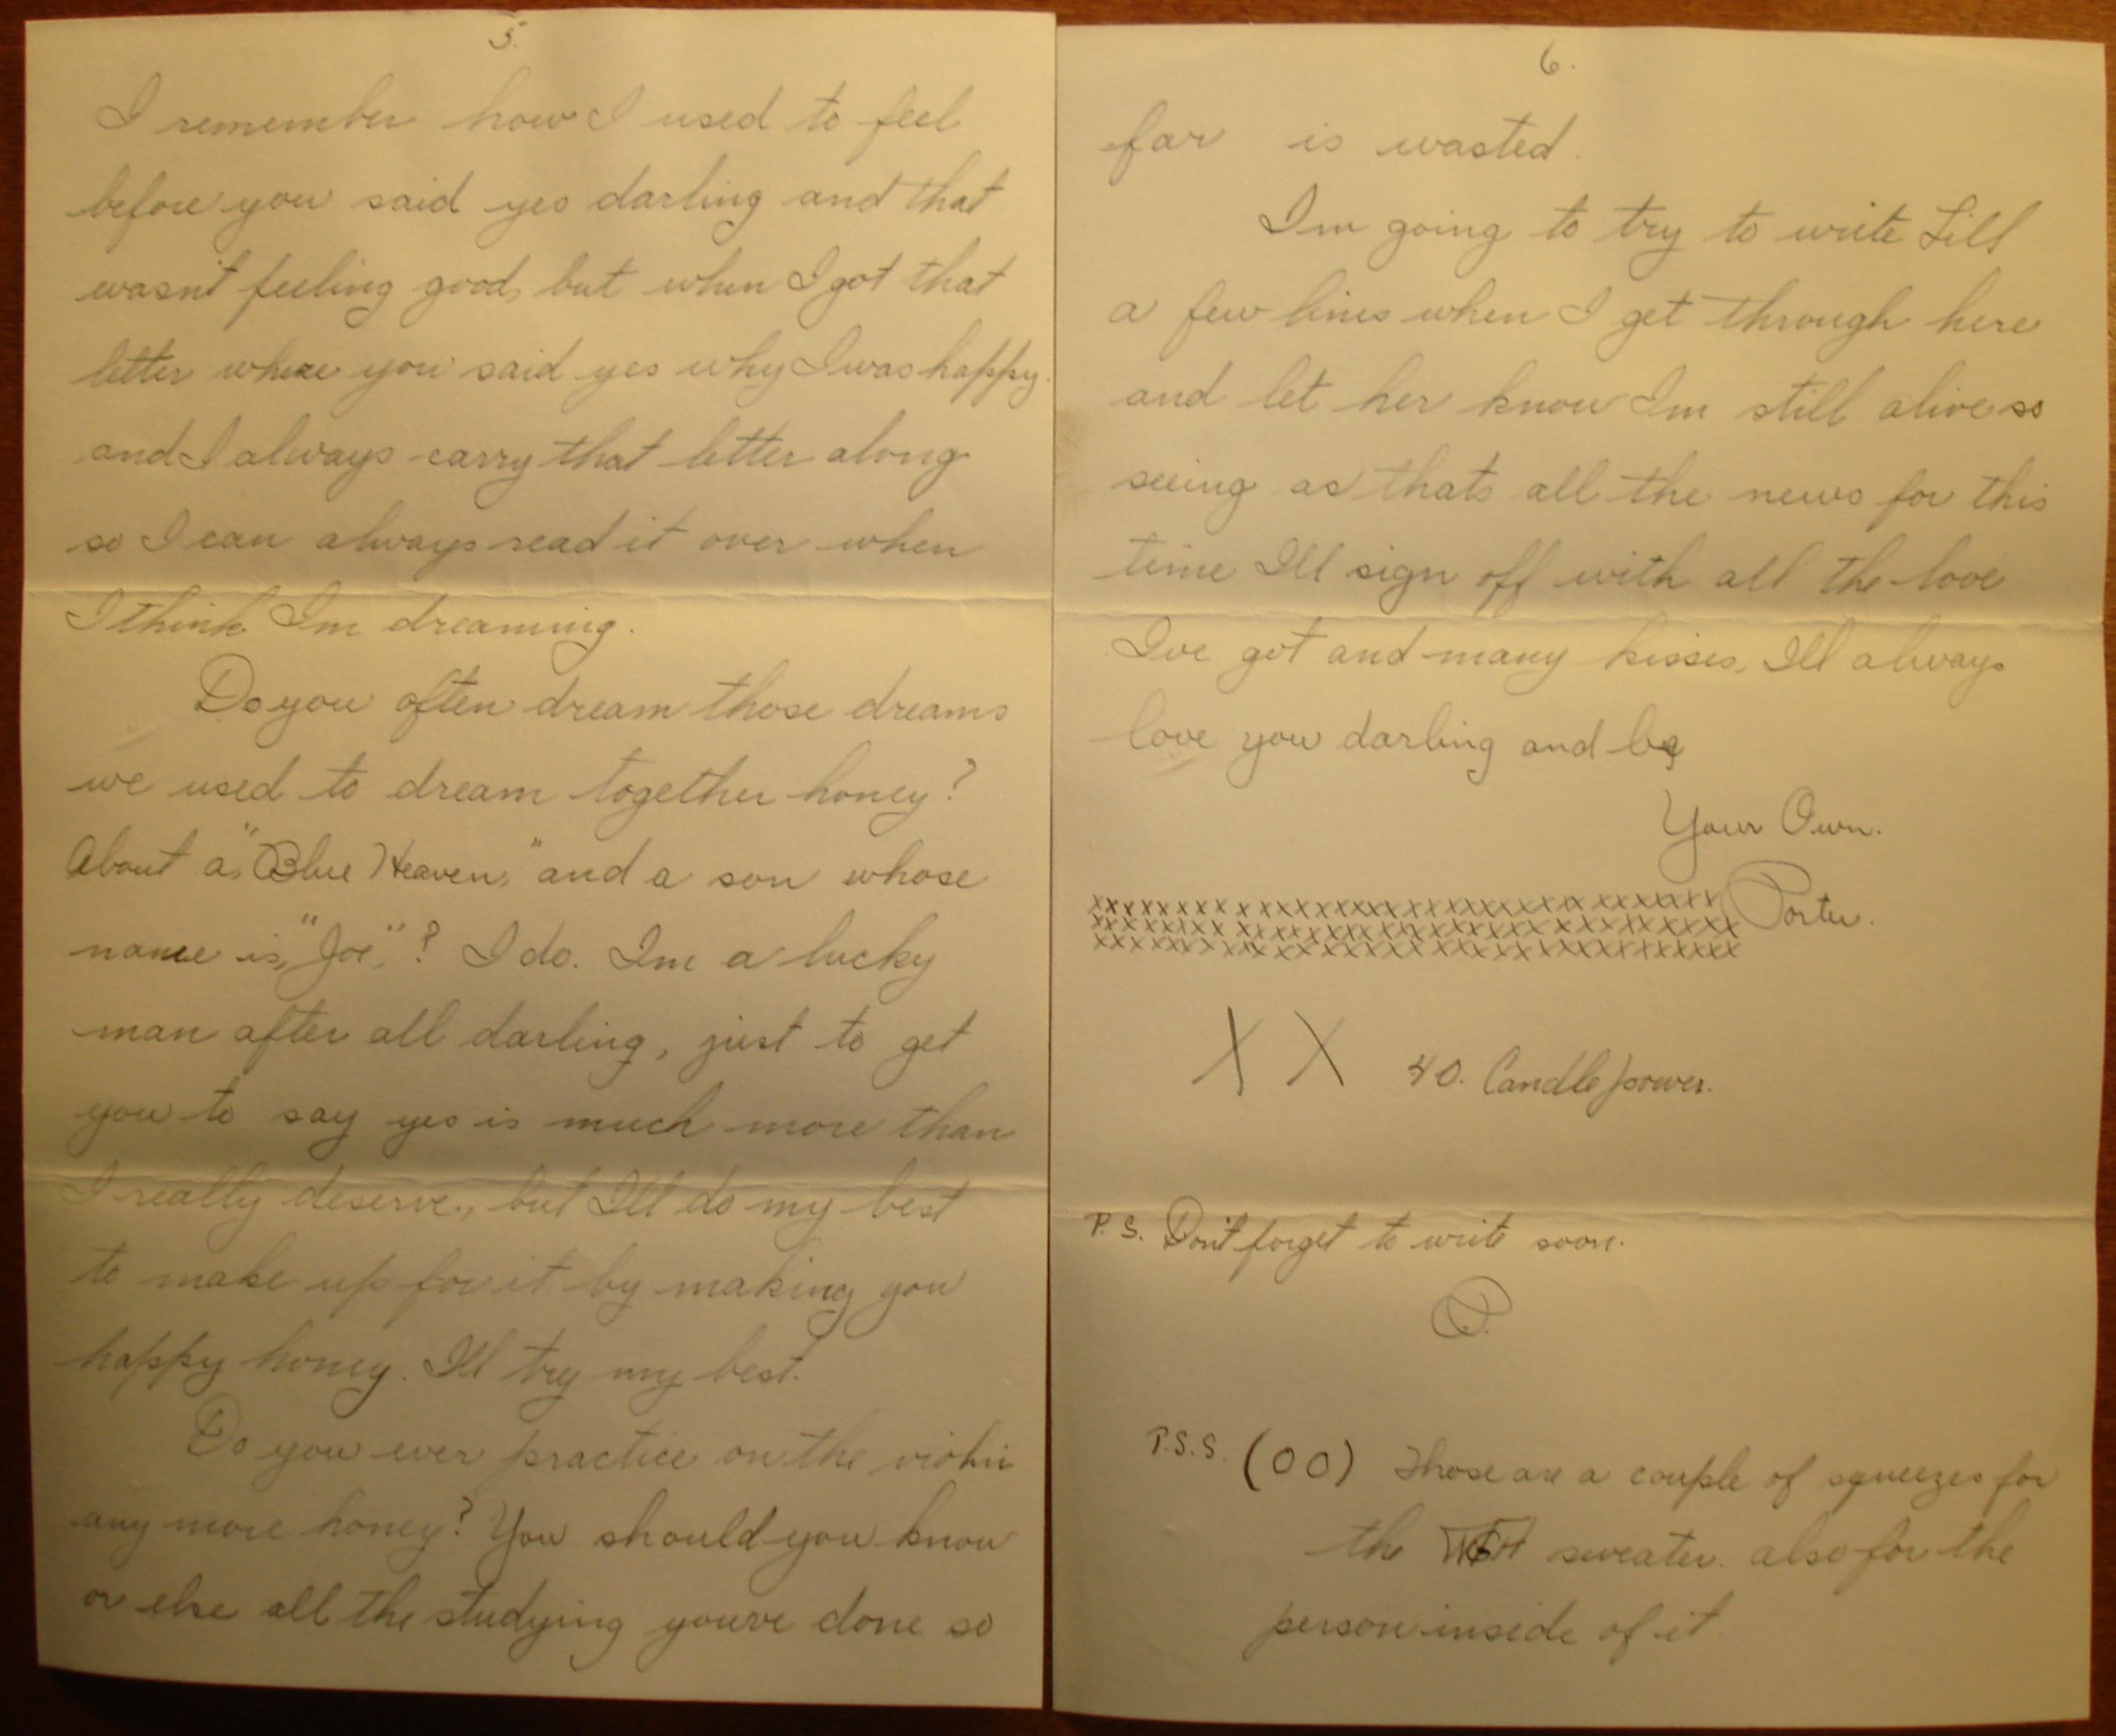 5.
I remember how I used to feel
before you said yes darling and that
wasn't feeling good, but when I got that
letter where you said yes why I was happy.
and I always carry that letter along
so I can always read it over when
I think Im dreaming.
Do you often dream those dreams
we used to dream together honey?
About a "Blue Heaven," and a son whose
name is, "Joe,"? I do. Im a lucky
man after all darling, just to get
you to say yes is much more than
I really deserve, but I'll do my best
to make up for it by making you
happy honey. I'll try my best.
Do you ever practice on the violin
any more honey? You should you know
or else all the studying youve done so
6.
far is wasted.
Im going to try to write Lill
a few lines when I get through here
and let her know Im still alive so
seeing as thats all the news for this
time Ill sign off with all the love
Ive got and many kisses, Ill always
love you darling and be
Your Own.
Porter.
xxxxxxxxxxxxxxxxxxxxxxxxxxxxxxxxxxx
xxxxxxxxxxxxxxxxxxxxxxxxxxxxxxxxxxx
xxxxxxxxxxxxxxxxxxxxxxxxxxxxxxxxxxx
X X 40. Candle power.
P.S. Don't forget to write soon.
P.
P.S.S. (00) Those are a couple of squeezes for
the sweater. also for the
person inside of it.